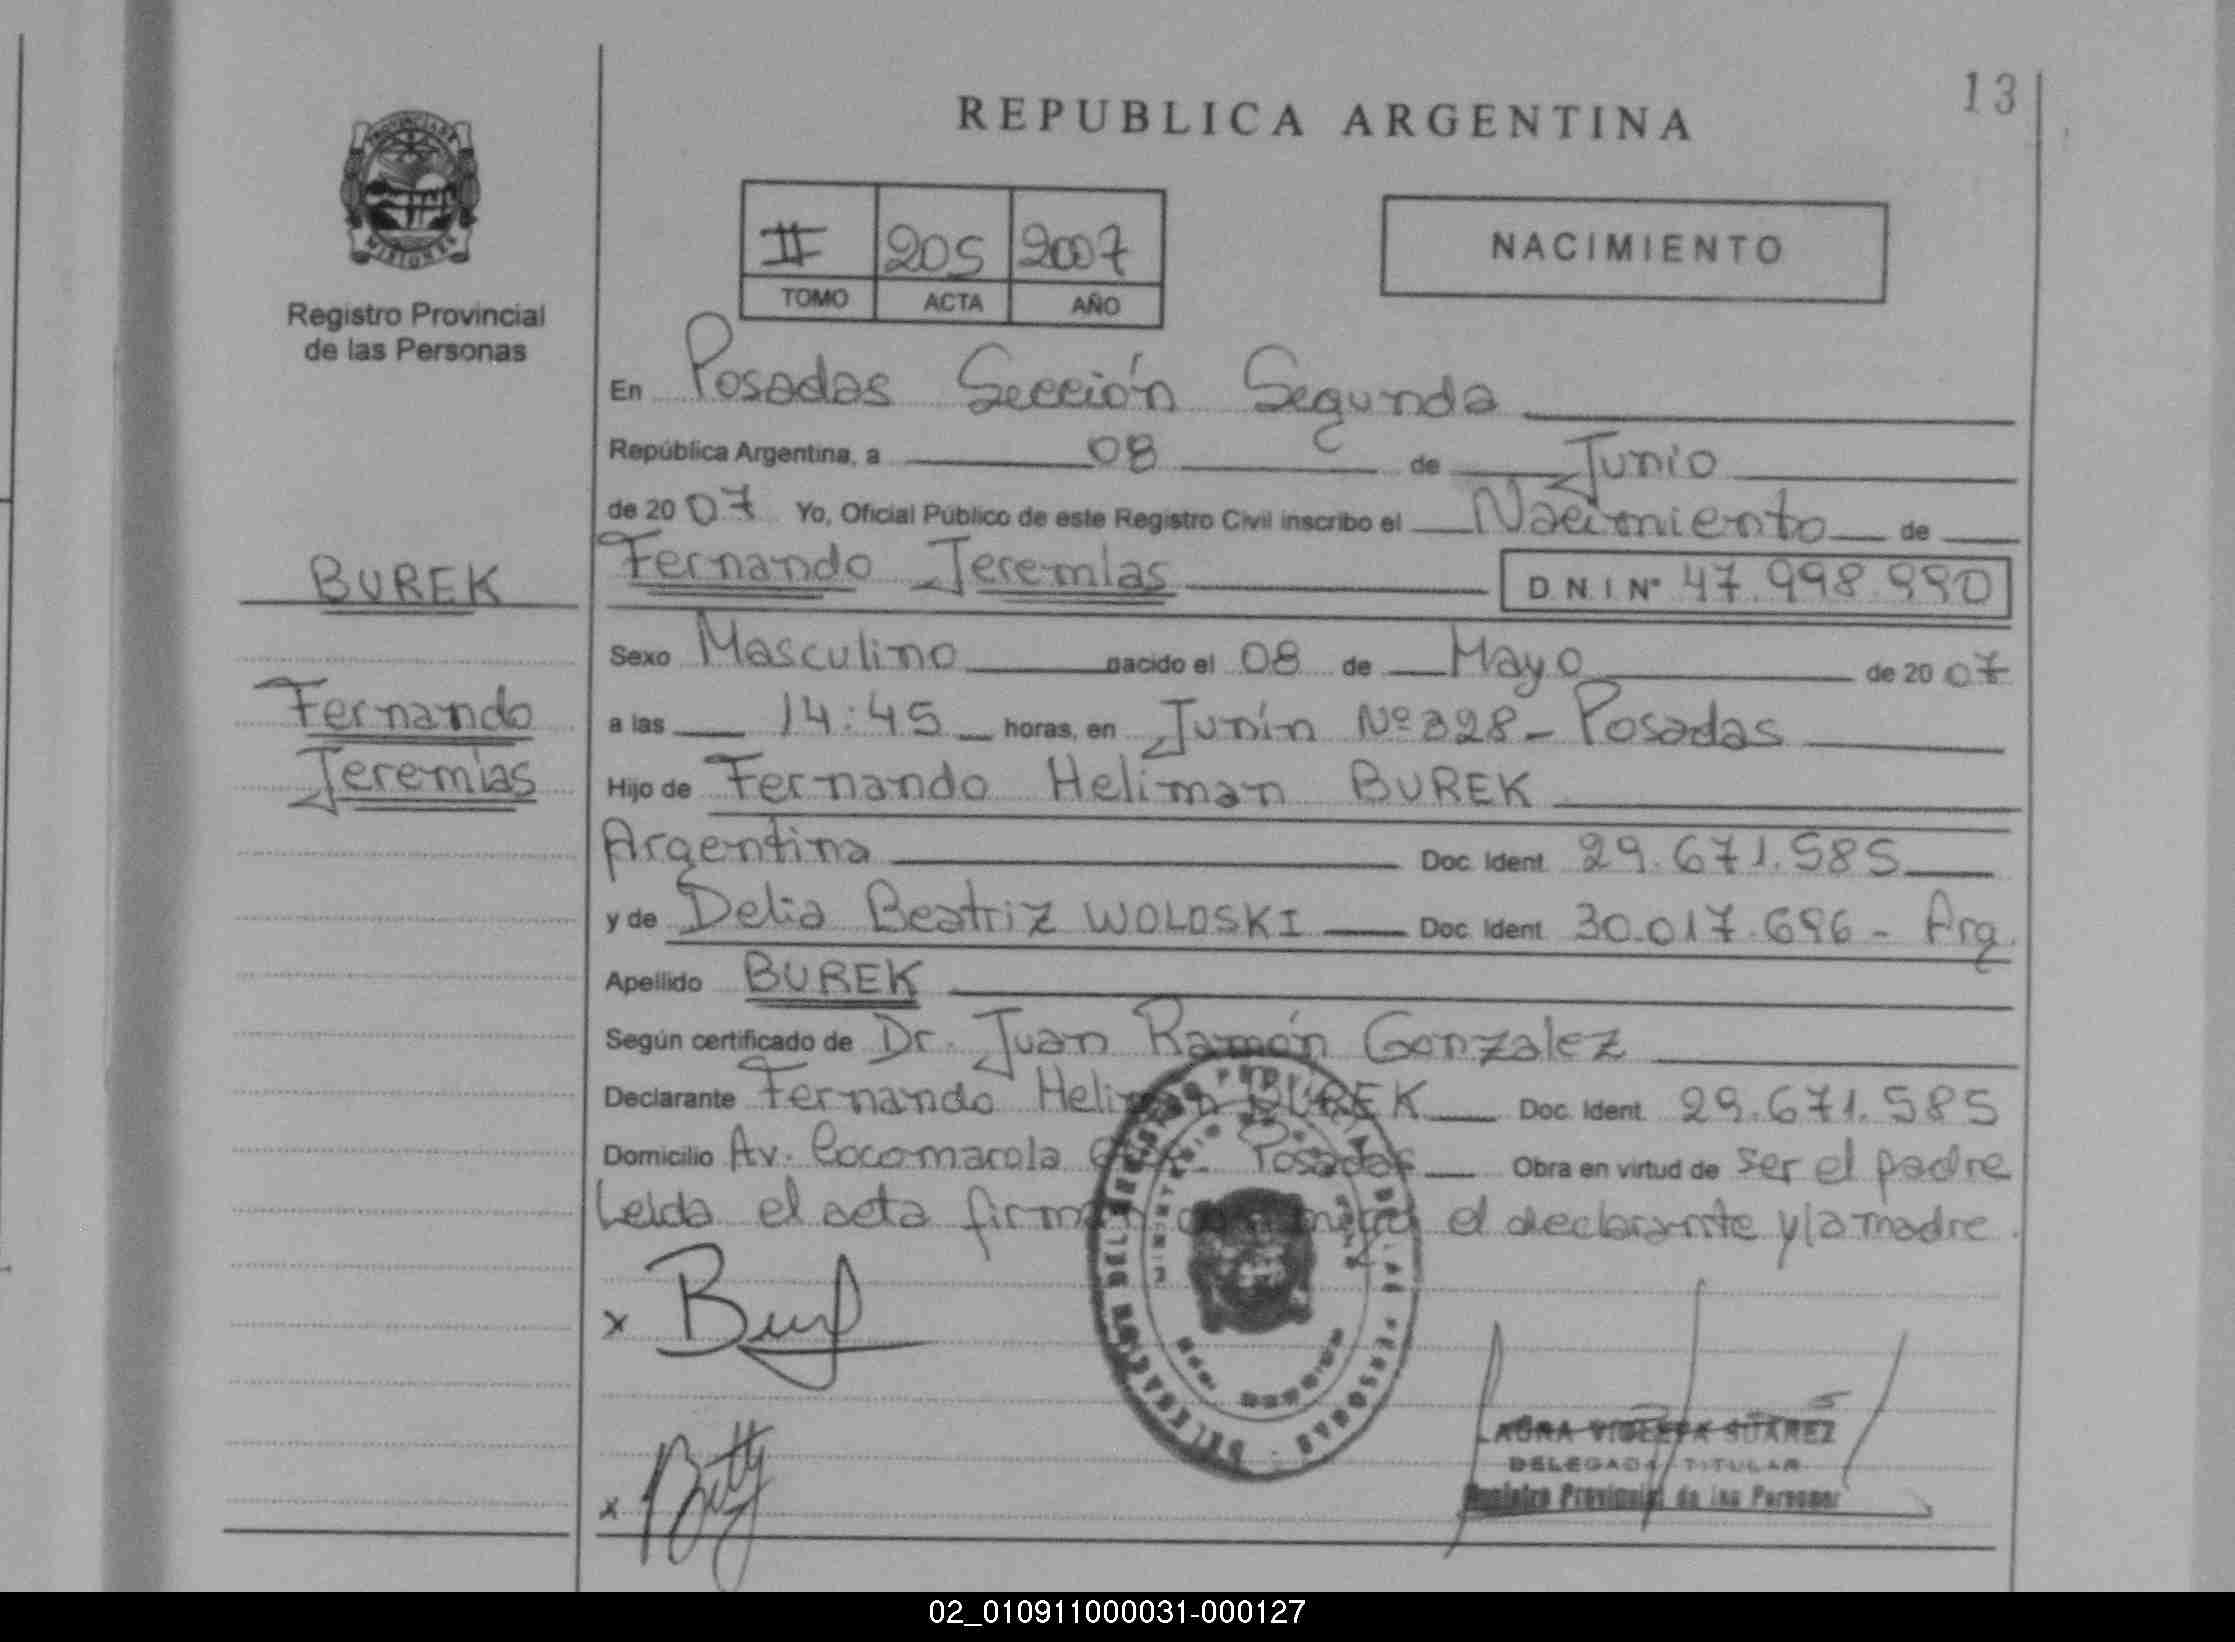 13
REPUBLICA ARGENTINA
MISIONES
Registro Provincial
de las Personas
II 205 2007
TOMO ACTA AÑO
NACIMIENTO
En Posadas Sección Segunda
República Argentina, a 08 de Junio
de 2007 Yo, Oficial Público de este Registro Civil inscribo el Nacimiento de
BUREK
Fernando Jeremías D.N.I Nº 47.998.990
Sexo Masculino nacido el 08 de Mayo de 2007
Fernando
Jeremías
a las 14:45 horas, en Junín Nº 328 - Posadas
Hijo de Fernando Heliman BUREK
Argentina Doc. Ident. 29.671.585
y de Delia Beatriz WOLOSKI Doc. Ident. 30.017.696 - Arg.
Apellido BUREK
Según certificado de Dr. Juan Ramón Gonzalez
Declarante Fernando Heliman BUREK Doc. Ident. 29.671.585
Domicilio Av. Cocomarola Posadas Obra en virtud de ser el padre
Leída el acta firman el declarante y la madre.
x
x
SUAREZ
DELEGADA TITULAR
Registro Provincial de las Personas
02_010911000031-000127